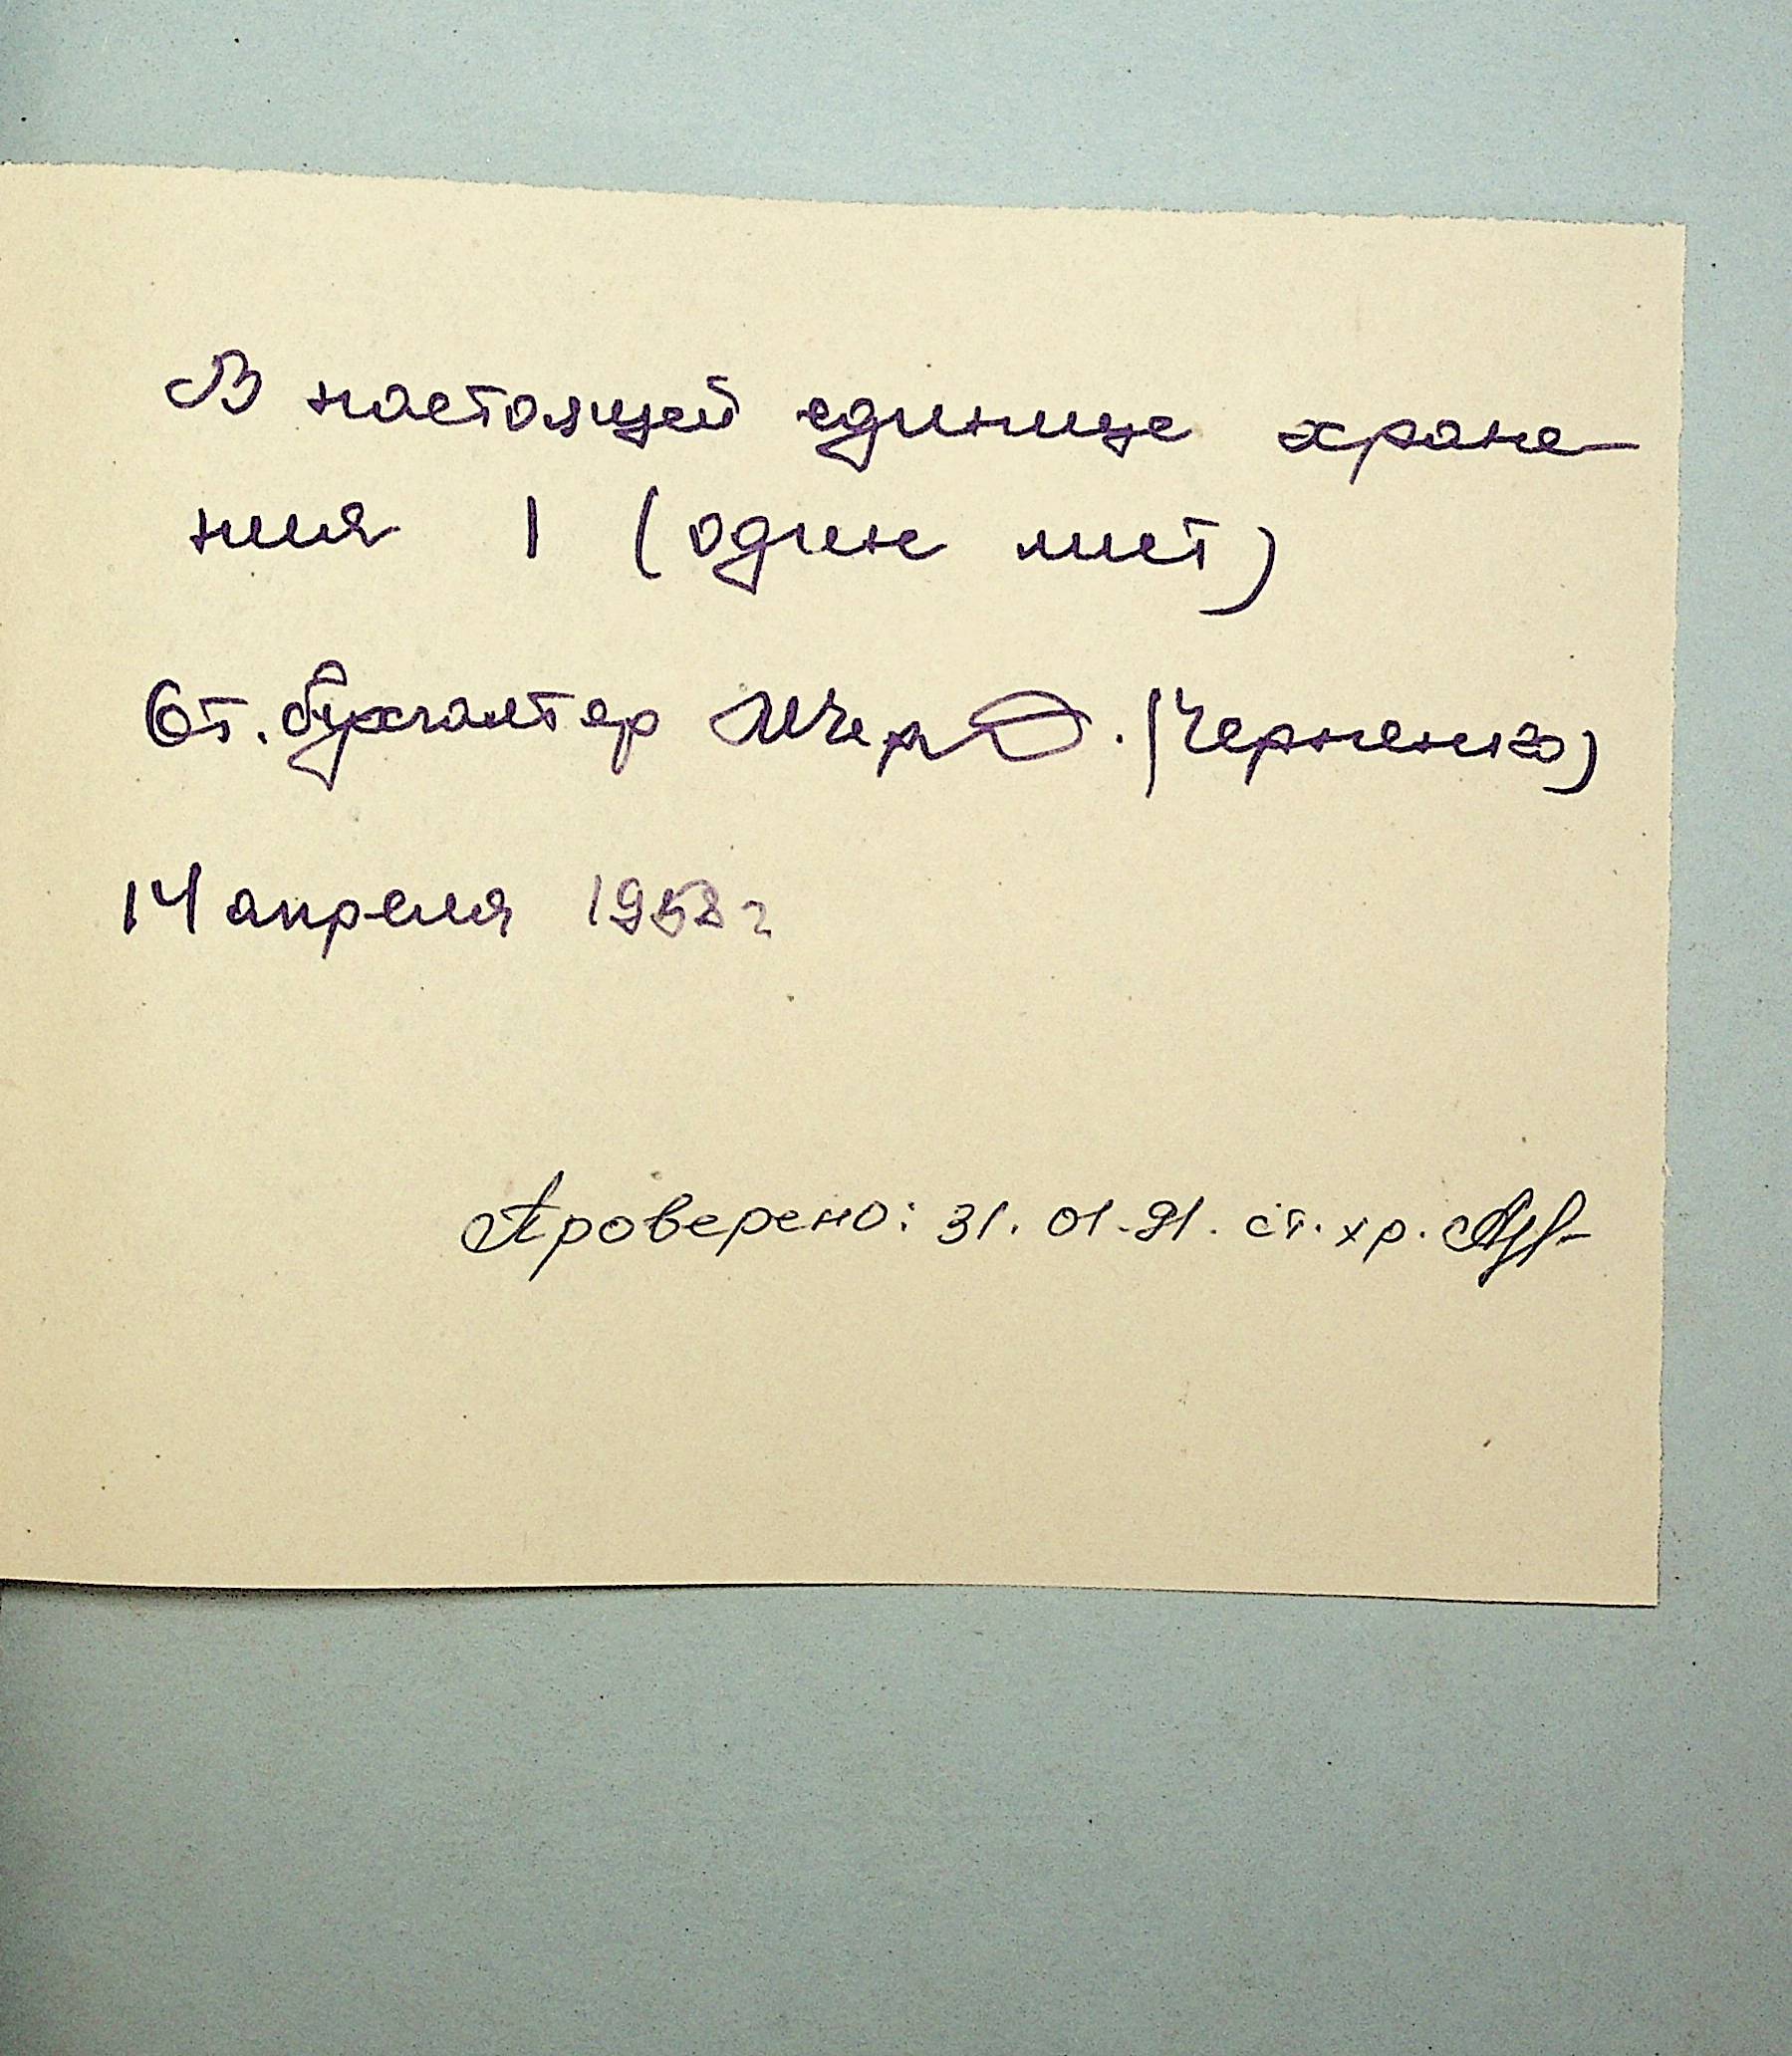 В настоящей единице хране-
ния 1 (один лист)
Ст. бухгалтер (Черненко)
14 апреля 1958 г
Проверено: 31.01.91. ст. хр.